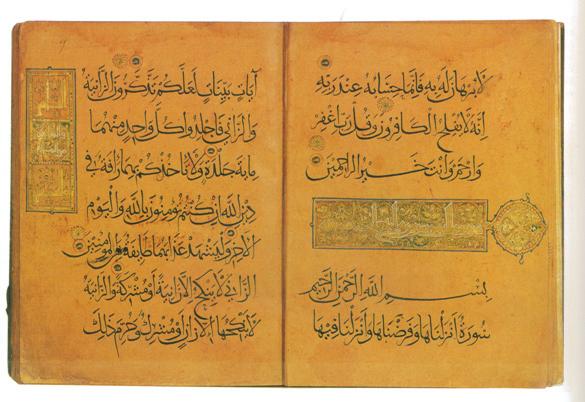 لا برهان له به فانما حسابه عند ربه
انه لا يفلح الكافرون وقل رب اغفر
وارحم وانت خير الراحمين
بسم الله الرحمن الرحيم
سورة انزلناها وفرضناها وانزلنا فيها
آيات بينات لعلكم تذكرون الزانية
والزاني فاجلدوا كل واحد منهما
ماية جلدة ولا تاخذكم بهما رافة في
دين الله ان كنتم تؤمنون بالله واليوم
الاخر وليشهد عذابهما طايفة من المؤمنين
الزاني لا ينكح الا زانية او مشركة والزانية
لا ينكحها الا زان او مشرك وحرم ذلك